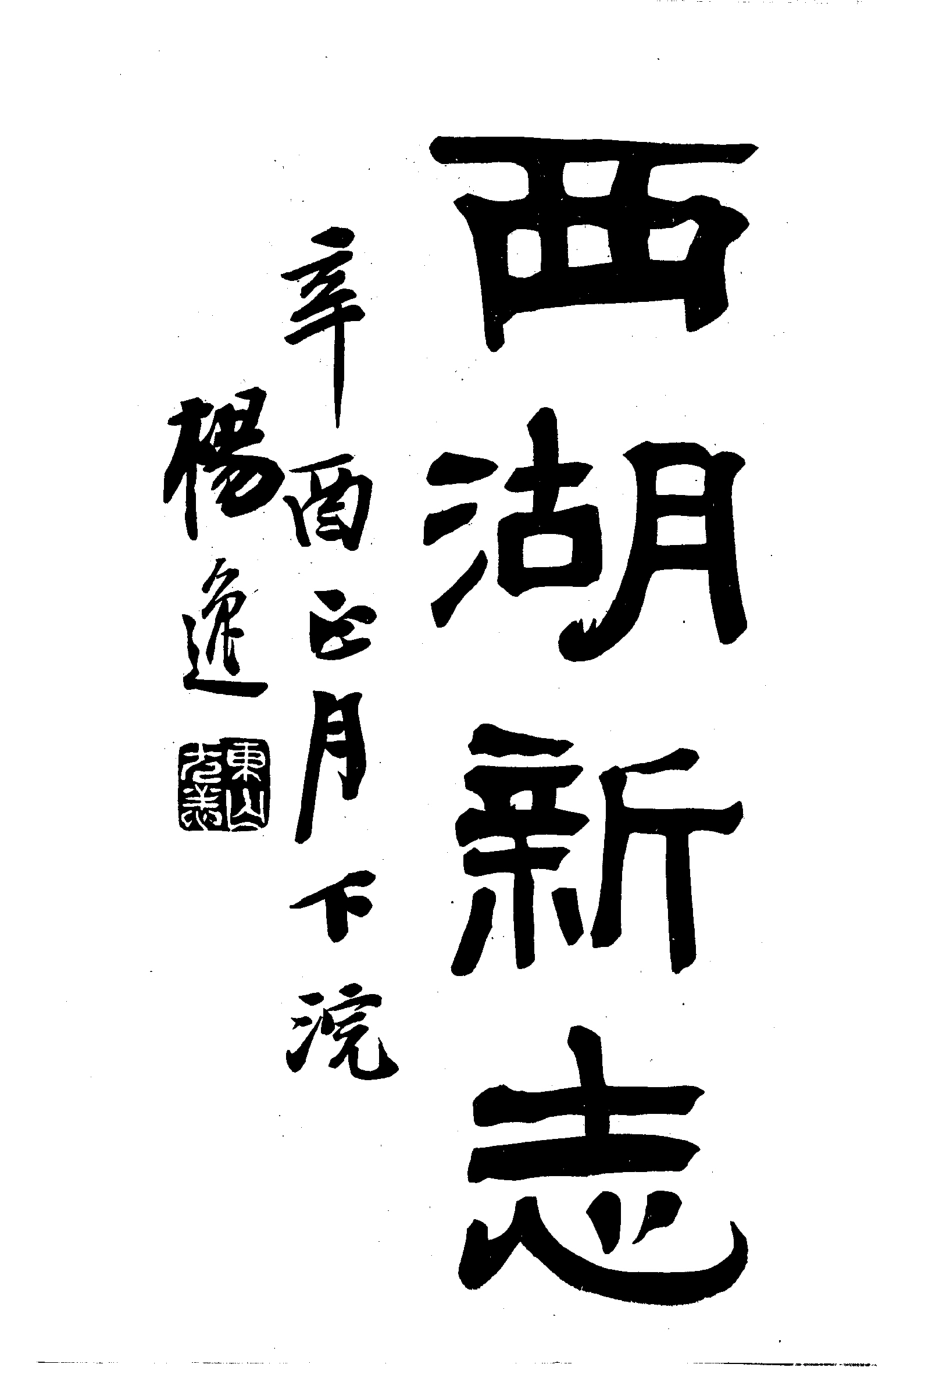 西湖新志
辛酉正月下浣
楊逸
東山